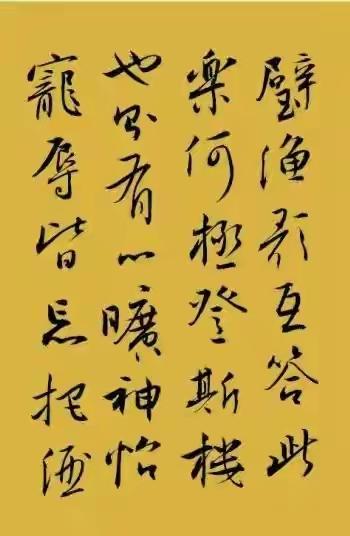 璧漁歌互答此
樂何極登斯樓
也則有心曠神怡
寵辱皆忘把酒